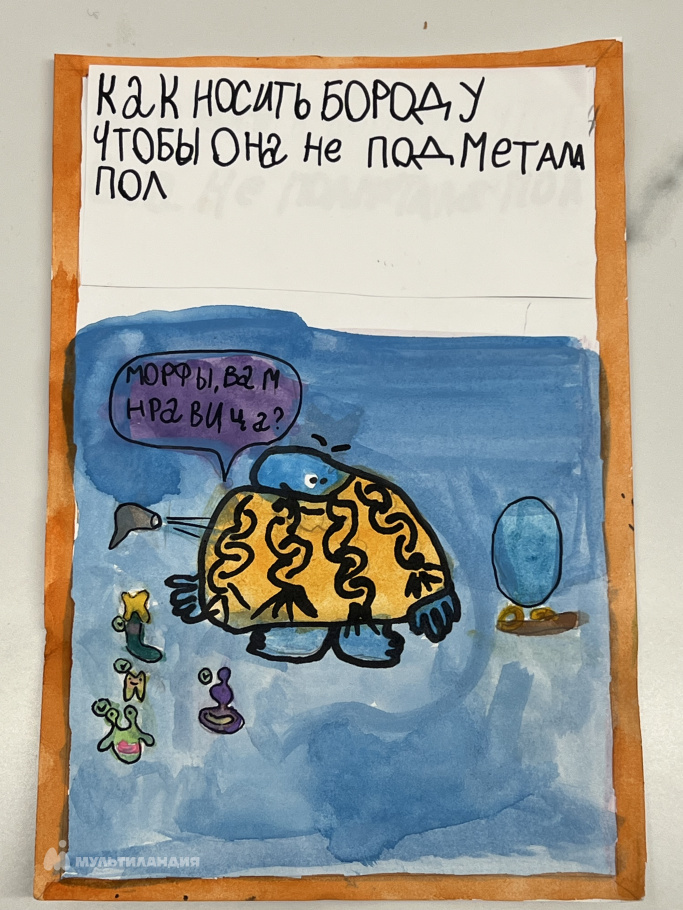 КаК НОСИТЬ БОРОДУ
ЧТОБЫ ОНа Не ПОДМеТАЛА
ПОЛ
МОРФЫ, Вам
НРаВИЦа?
МУЛЬТИЛАНДИЯ